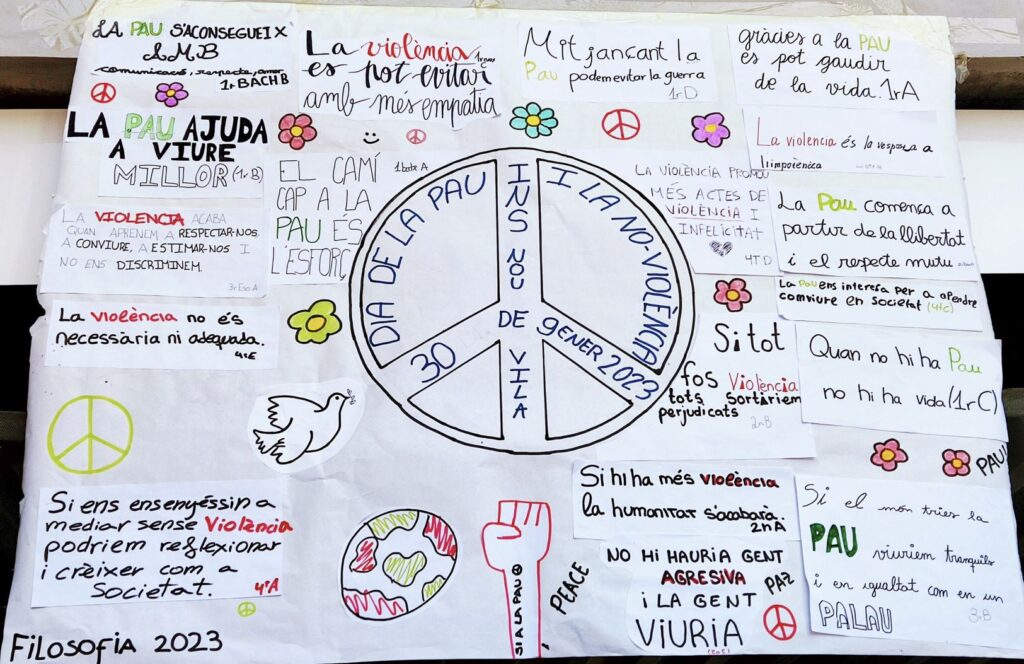 LA PAU S'ACONSEGUEIX
comunicació, respecte, amor
1r BACH B
LA PAU AJUDA
A VIURE
MILLOR (1r B)
LA VIOLENCIA ACABA
QUAN APRENEM A RESPECTAR-NOS,
A CONVIURE, A ESTIMAR-NOS I
NO ENS DISCRIMINEM.
3r ESO A
La violència no és
necessària ni adequada.
4t E
Si ens ensenyéssin a
mediar sense Violència
podriem reflexionar
i crèixer com a
Societat.
4t A
Filosofia 2023
La violència
es pot evitar
amb més empatia
EL CAMÍ
CAP A LA
PAU ÉS
L'ESFORÇ
1 batx A
Mitjançant la
Pau podem evitar la guerra
1r D
gràcies a la PAU
es pot gaudir
de la vida. 1r A
La violencia és la resposta a
l'impotència
LA VIOLÈNCIA PROMOU
MÉS ACTES DE
VIOLÈNCIA I
INFELICITAT
4T D
La Pau comença a
partir de la llibertat
i el respecte mutu
La Pau ens interesa per a apendre
comviure en societat (4tc)
DIA DE LA PAU
I LA NO-VIOLÈNCIA
INS NOU DE VILA
30 DE gENER 2023
Si tot
fos Violència
tots sortiriem
perjudicats
2n B
Quan no hi ha Pau
no hi ha vida (1r C)
PAU!
Si hi ha més violència
la humanitat s'acabarà.
2n A
NO HI HAURIA GENT
AGRESIVA
I LA GENT
VIURIA
PAZ
Si el món tries la
PAU viuriem tranquils
i en igualtat com en un
PALAU
3r B
SI A LA PAU
PEACE